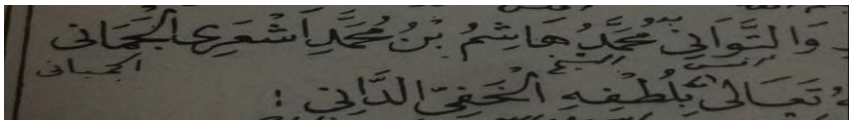 وَالتَّوَانِي مُحَمَّدُ هَاشِمُ بْنُ مُحَمَّدٍ اَشْعَرِي الْجُمَانِي
تَعَالَى بِلُطْفِهِ الْخَفِيِّ الدَّانِي :